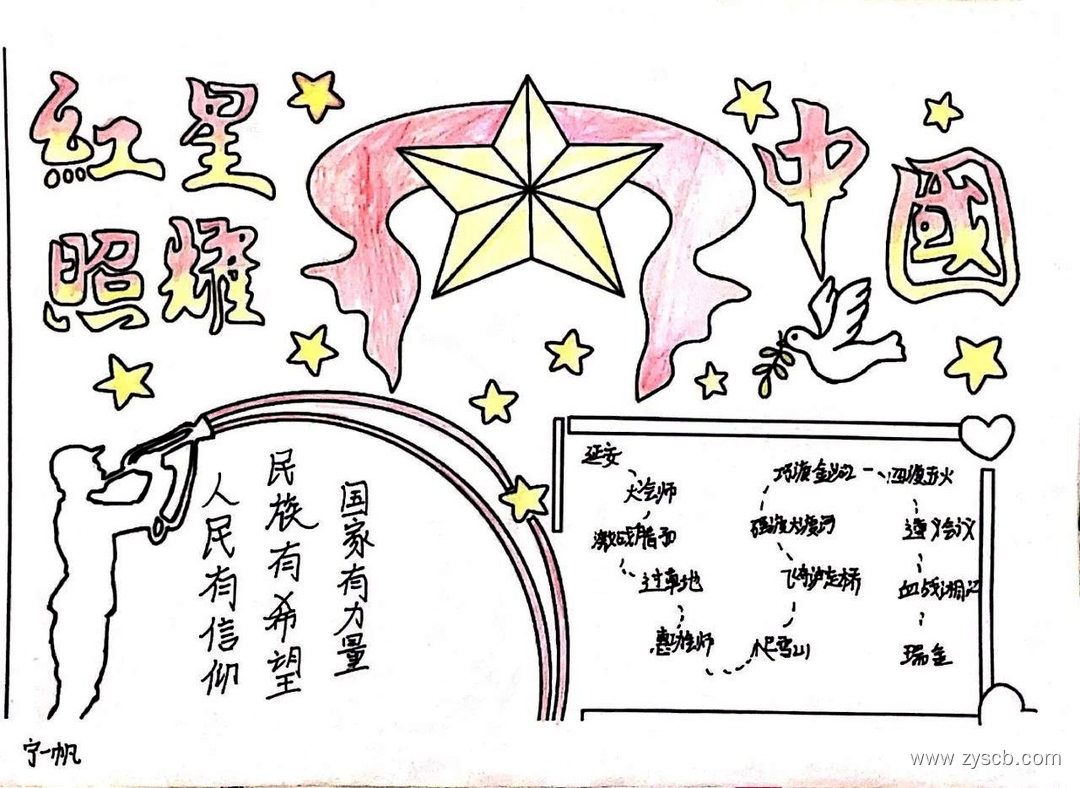 紅星
照耀
中國
人民有信仰
民族有希望
国家有力量
延安
大会师
激战腊子
过草地
懋功会师
爬雪山
飞夺泸定桥
强渡大渡河
巧渡金沙江
四渡赤水
遵义会议
血战湘江
瑞金
宁一帆
www.zyscb.com